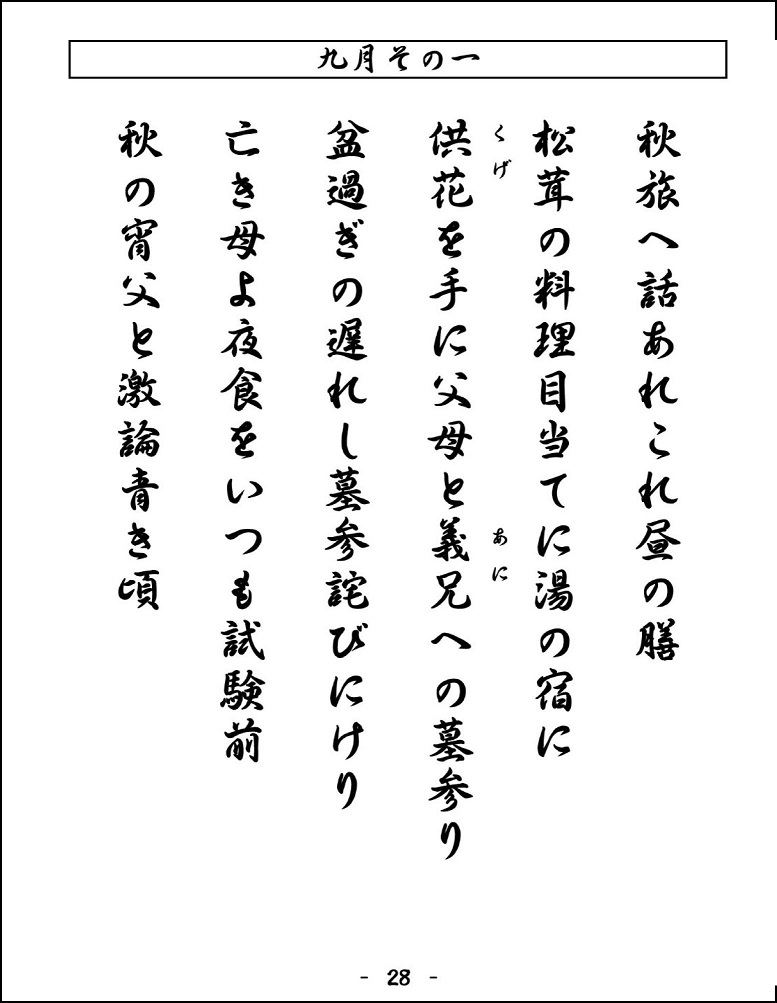 九月その一
秋旅へ話あれこれ昼の膳
松茸の料理目当てに湯の宿に
くげ
あに
供花を手に父母と義兄への墓参り
盆過ぎの遅れし墓参詫びにけり
亡き母よ夜食をいつも試験前
秋の宵父と激論青き頃
- 28 -